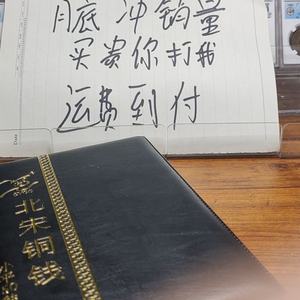 月底冲销量
买贵你打我
运费到付
北宋铜钱